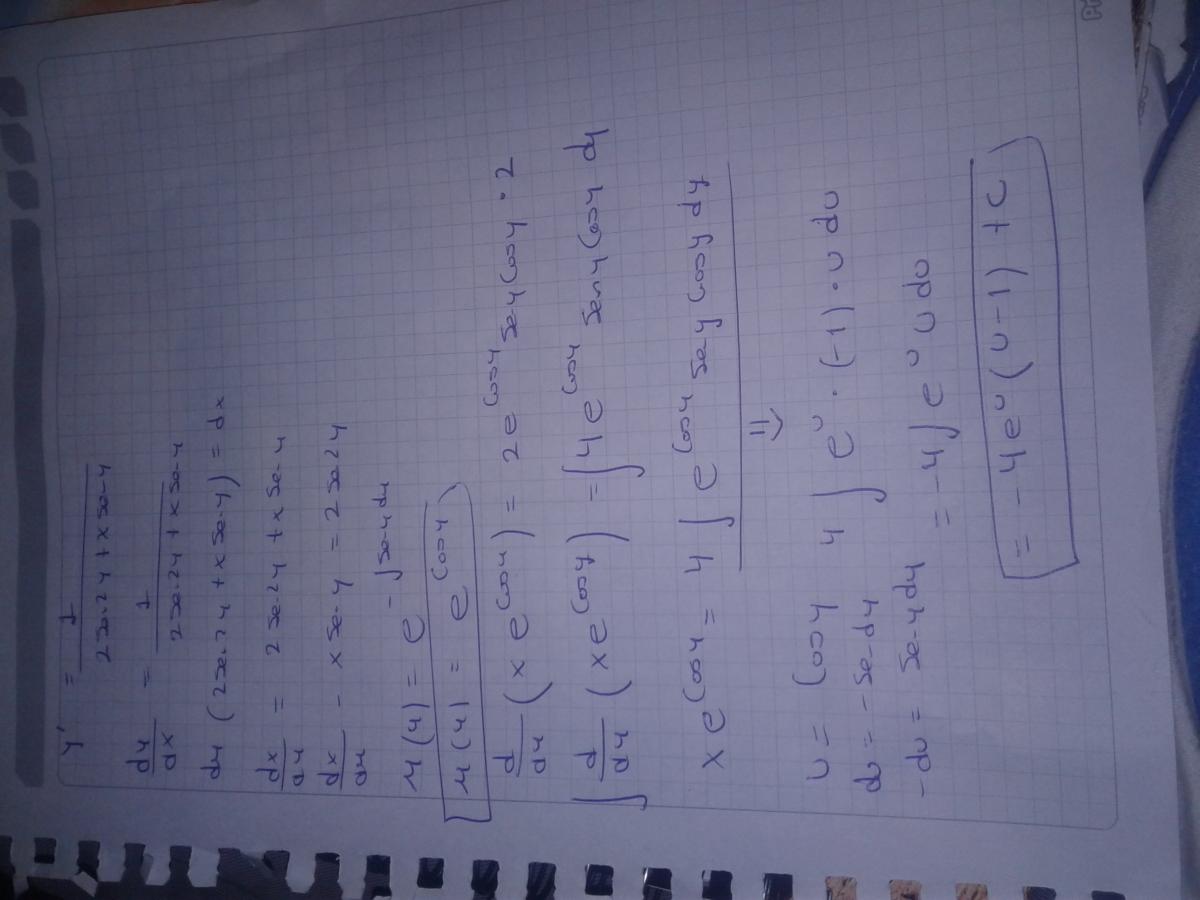 y' = 1 / (2 Sen 2y + x Sen y)
dy/dx = 1 / (2 Sen 2y + x Sen y)
dy (2 Sen 2y + x Sen y) = dx
dx/dy = 2 Sen 2y + x Sen y
dx/dy - x Sen y = 2 Sen 2y
μ(y) = e^(-∫ Sen y dy)
μ(y) = e^(Cos y)
d/dy (x e^(Cos y)) = 2 e^(Cos y) Sen y Cos y · 2
∫ d/dy (x e^(Cos y)) = ∫ 4 e^(Cos y) Sen y Cos y dy
x e^(Cos y) = 4 ∫ e^(Cos y) Sen y Cos y dy
⇒
u = Cos y 4 ∫ e^u · (-1) · u du
du = - Sen dy
- du = Sen y dy = -4 ∫ e^u u du
= -4 e^u (u - 1) + C